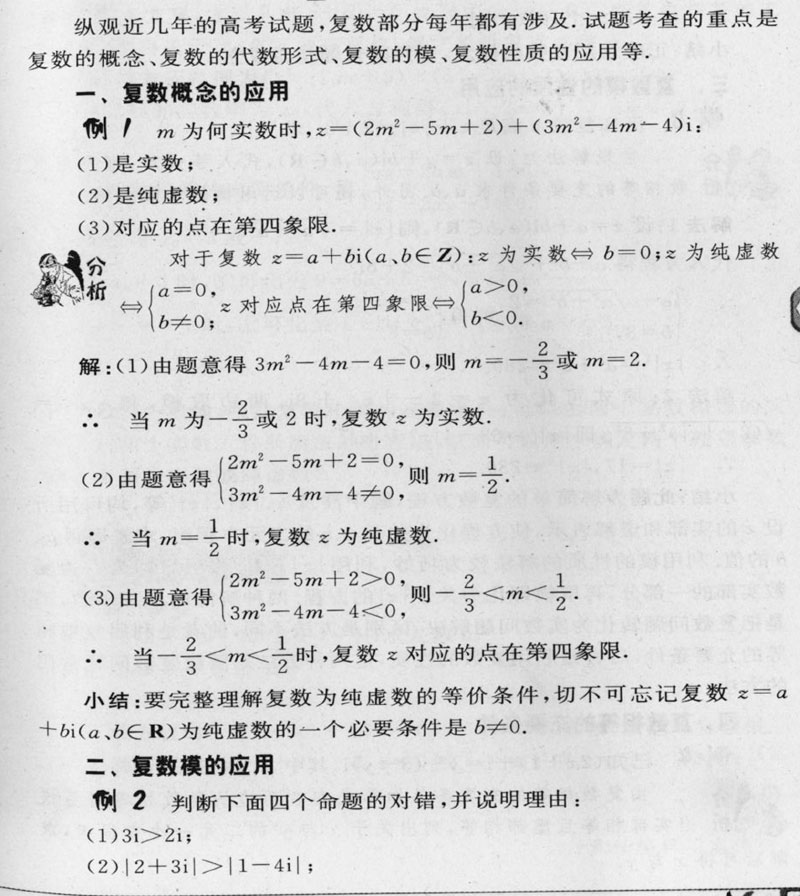 纵观近几年的高考试题,复数部分每年都有涉及.试题考查的重点是
复数的概念、复数的代数形式、复数的模、复数性质的应用等.
一、复数概念的应用
例1 m为何实数时,z=(2m²-5m+2)+(3m²-4m-4)i:
(1)是实数;
(2)是纯虚数;
(3)对应的点在第四象限.
分析 对于复数 z=a+bi(a、b∈Z):z 为实数⇔ b=0;z 为纯虚数
⇔{a=0, b≠0; z 对应点在第四象限⇔{a>0, b<0.
解:(1)由题意得 3m²-4m-4=0,则 m=-2/3或 m=2.
∴ 当 m 为-2/3或 2 时,复数 z 为实数.
(2)由题意得{2m²-5m+2=0, 3m²-4m-4≠0, 则 m=1/2.
∴ 当 m=1/2时,复数 z 为纯虚数.
(3)由题意得{2m²-5m+2>0, 3m²-4m-4<0, 则-2/3<m<1/2.
∴ 当-2/3<m<1/2时,复数 z 对应的点在第四象限.
小结:要完整理解复数为纯虚数的等价条件,切不可忘记复数 z=a
+bi(a、b∈R)为纯虚数的一个必要条件是 b≠0.
二、复数模的应用
例2 判断下面四个命题的对错,并说明理由:
(1)3i>2i;
(2)|2+3i|>|1-4i|;